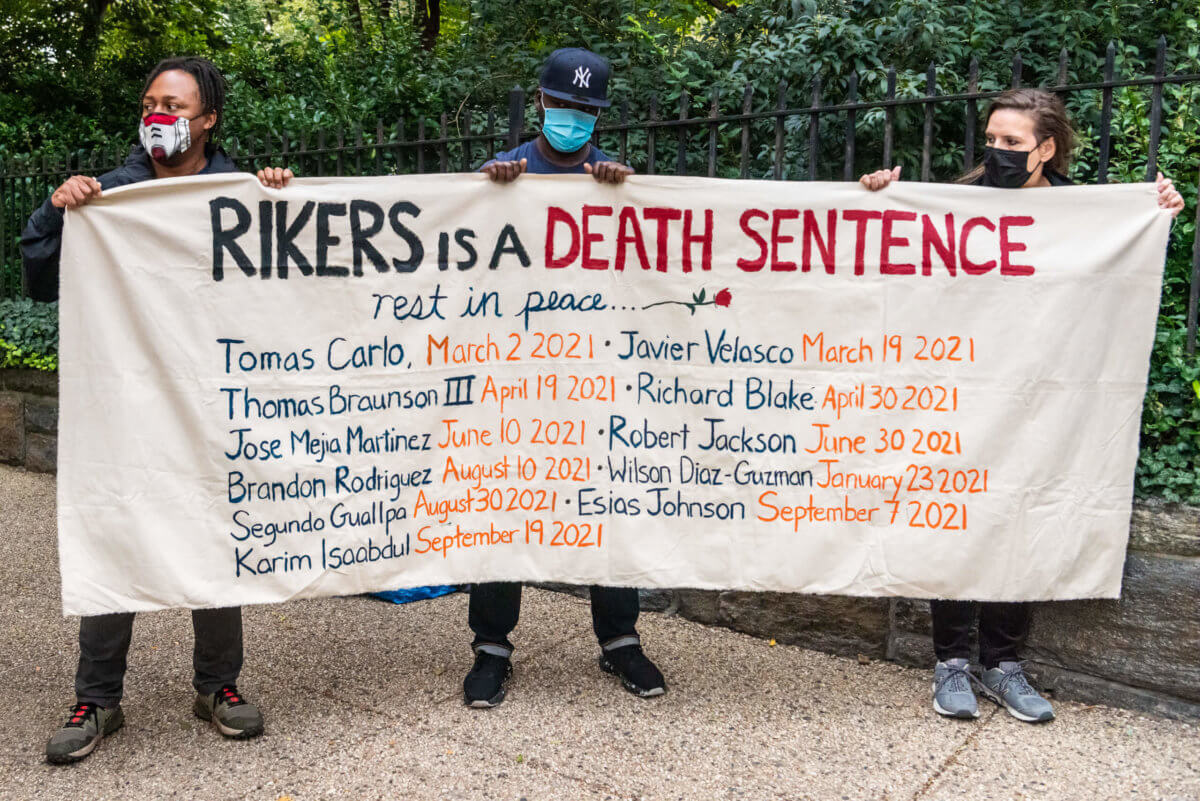 NY
RIKERS IS A DEATH SENTENCE
rest in peace...
Tomas Carlo, March 2 2021 · Javier Velasco March 19 2021
Thomas Braunson III April 19 2021 · Richard Blake April 30 2021
Jose Mejia Martinez June 10 2021 · Robert Jackson June 30 2021
Brandon Rodriguez August 10 2021 · Wilson Diaz-Guzman January 23 2021
Segundo Guallpa August 30 2021 · Esias Johnson September 7 2021
Karim Isaabdul September 19 2021